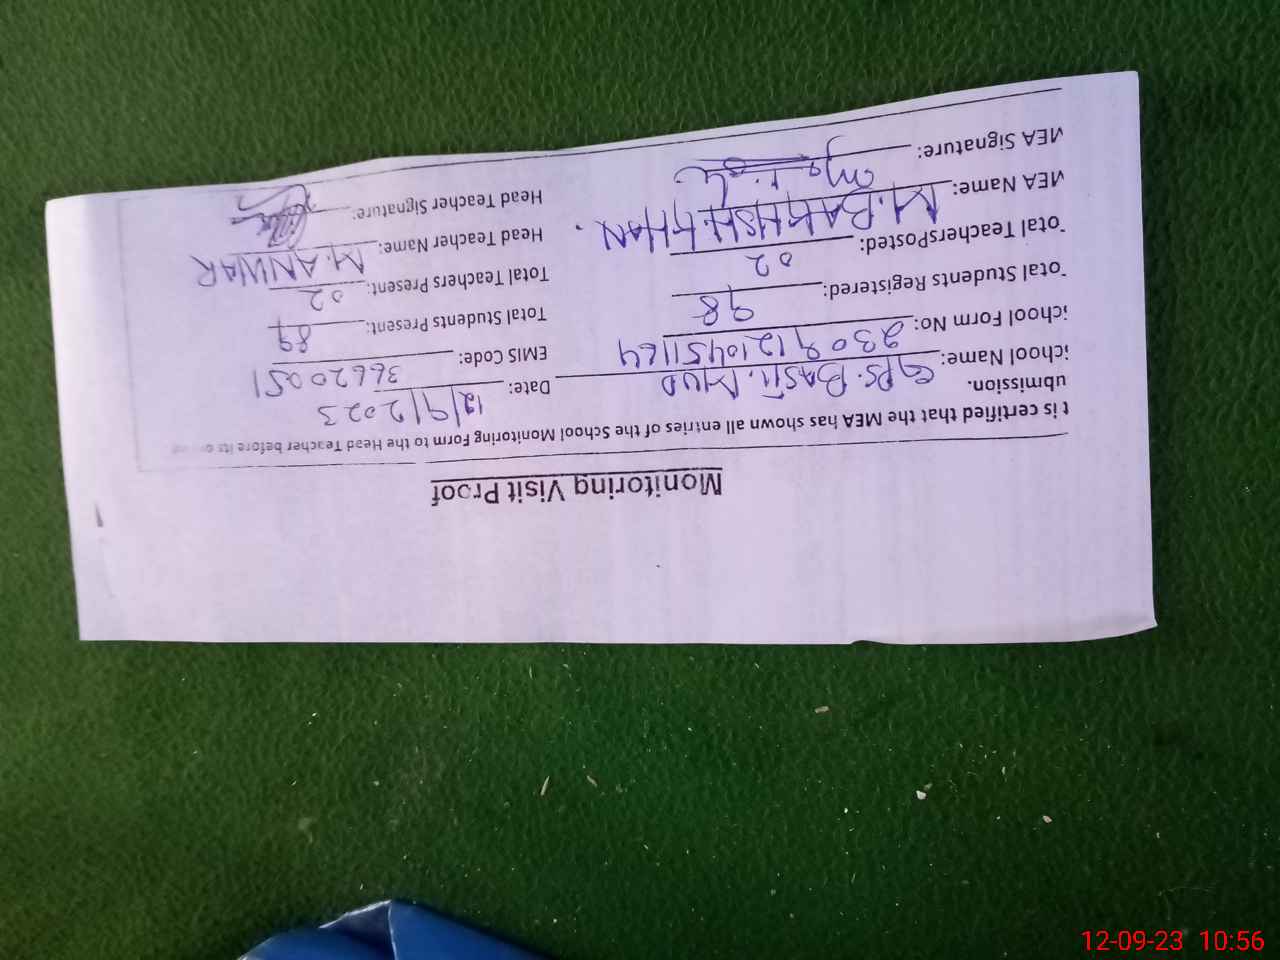 Monitoring Visit Proof
t is certified that the MEA has shown all entries of the School Monitoring Form to the Head Teacher before its
ubmission.
Date: 12/9/2023
chool Name: GPS. BASTI. MUD
EMIS Code: 36620051
chool Form No: 230912104511 64
Total Students Present: 89
otal Students Registered: 98
Total Teachers Present: 02
otal TeachersPosted: 02
Head Teacher Name: M. ANWAR
MEA Name: M. BAKHSH. KHAN.
Head Teacher Signature:
MEA Signature:
12-09-23 10:56